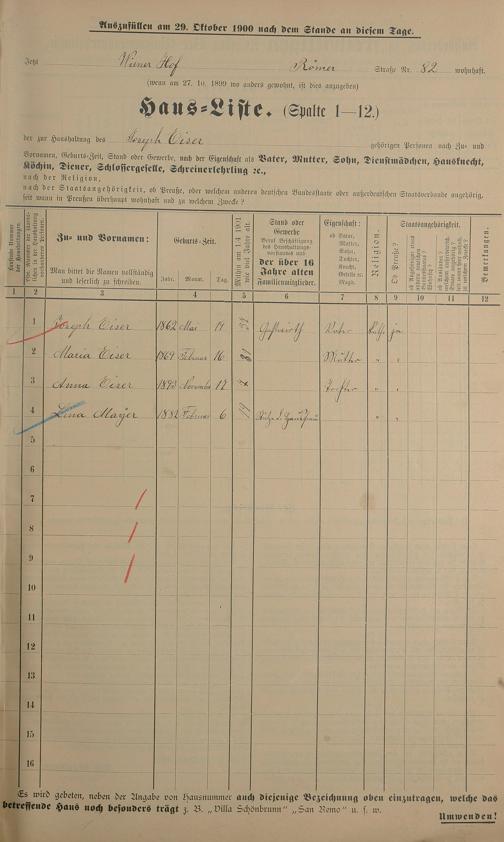 Auszufüllen am 29. Oktober 1900 nach dem Stande an diesem Tage.
Jetzt Wiener Hof Römer Straße Nr. 82 wohnhaft.
(wenn am 27. 10. 1899 wo anders gewohnt, ist dies anzugeben)
Haus-Liste. (Spalte 1—12.)
der zur Haushaltung des Joseph Eiser gehörigen Personen nach Zu- und
Vornamen, Geburts-Zeit, Stand oder Gewerbe, nach der Eigenschaft als Vater, Mutter, Sohn, Dienstmädchen, Hausknecht,
Köchin, Diener, Schlossergeselle, Schreinerlehrling ꝛc.,
nach der Religion,
nach der Staatsangehörigkeit, ob Preuße, oder welchem anderen deutschen Bundesstaate oder außerdeutschen Staatsverbande angehörig,
seit wann in Preußen überhaupt wohnhaft und zu welchem Zwecke?
Zu- und Vornamen:
Man bittet die Namen vollständig
und leserlich zu schreiben.
Geburts-Zeit.
Jahr. Monat. Tag.
Stand oder
Gewerbe
der über 16
Jahre alten
Familienmitglieder.
Eigenschaft:
ob Vater,
Mutter,
Sohn,
Tochter,
Knecht,
Magd.
Religion.
Staatsangehörigkeit.
Ob Preuße?
Bemerkungen.
1 2 3 4 5 6 7 8 9 10 11 12
1 Joseph Eiser 1862 Mai Gastwirth Vater Kath. ja
2 Maria Eiser 1869 Februar 16 31 Mutter " "
3 Anna Eiser 1893 November 12 7 Tochter " "
4 Lina Mayer 1882 Februar 6 19 " "
5
6
7
8
9
10
11
12
13
14
15
16
Es wird gebeten, neben der Angabe von Hausnummer auch diejenige Bezeichnung oben einzutragen, welche das
betreffende Haus noch besonders trägt z. B. „Villa Schönbrunn" „San Remo" u. s. w.
Umwenden!